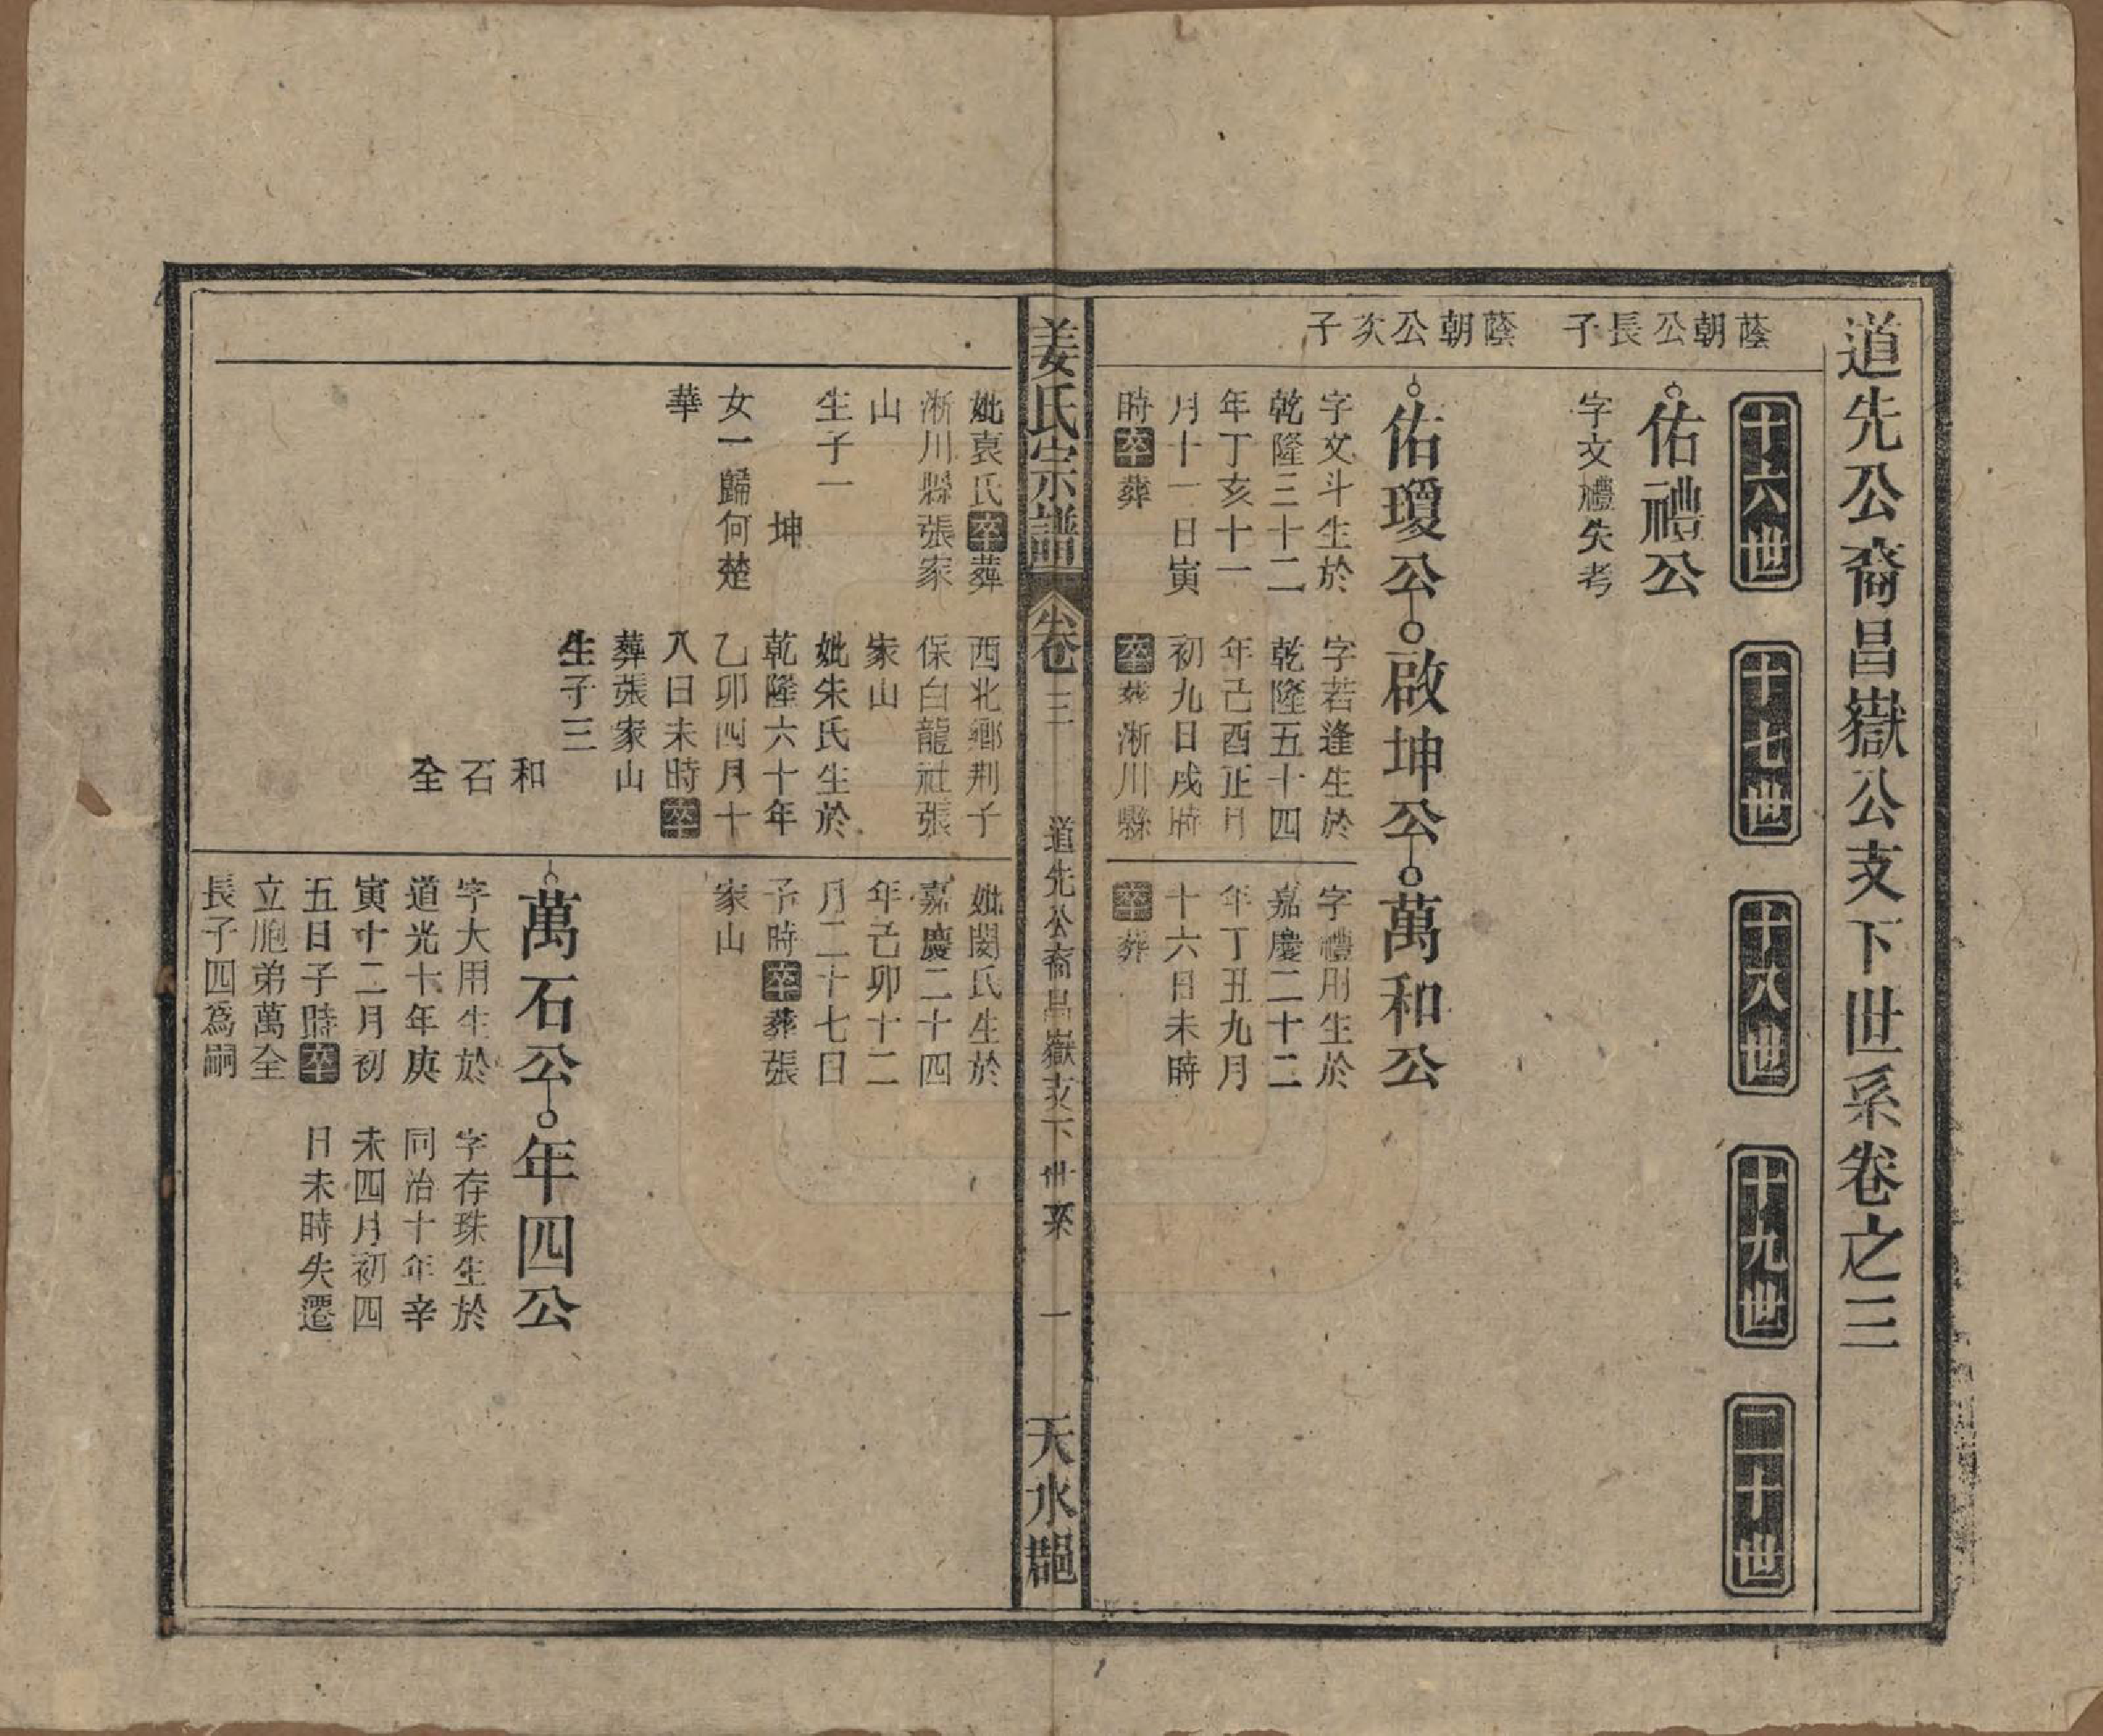 道先公裔昌嶽公支下世系卷之三
十六世
十七世
十八世
十九世
二十世
蔭朝公長子
佑禮公
字文禮失考
蔭朝公次子
佑瓊公
字文斗生於
乾隆三十二
年丁亥十一
月十一日寅
時卒葬
啟坤公
字若逢生於
乾隆五十四
年己酉正月
初九日戌時
卒葬淅川縣
萬和公
字禮用生於
嘉慶二十二
年丁丑九月
十六日未時
卒葬
姜氏宗譜
卷三
道先公裔昌嶽支下世系
一
天水郡
妣袁氏卒葬
淅川縣張家
山
生子一
坤
女一歸何楚
華
西北鄉荆子
保白龍社張
家山
妣朱氏生於
乾隆六十年
乙卯四月十
八日未時卒
葬張家山
生子三
和
石
全
妣閔氏生於
嘉慶二十四
年己卯十二
月二十七日
子時卒葬張
家山
萬石公
字大用生於
道光十年庚
寅十二月初
五日子時卒
立胞弟萬全
長子四爲嗣
年四公
字存珠生於
同治十年辛
未四月初四
日未時失遷